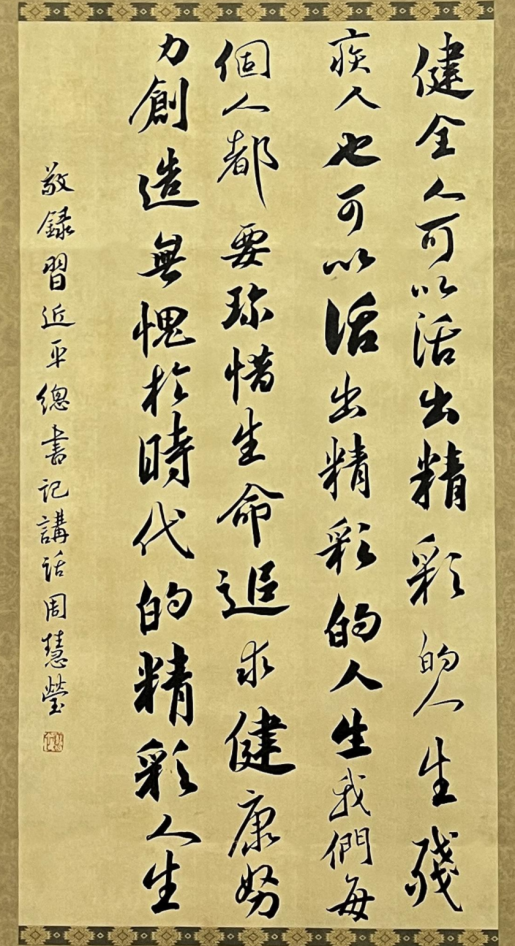 健全人可以活出精彩的人生殘
疾人也可以活出精彩的人生我們每
個人都要珍惜生命追求健康努
力創造無愧於時代的精彩人生
敬錄習近平總書記講話周慧瑩